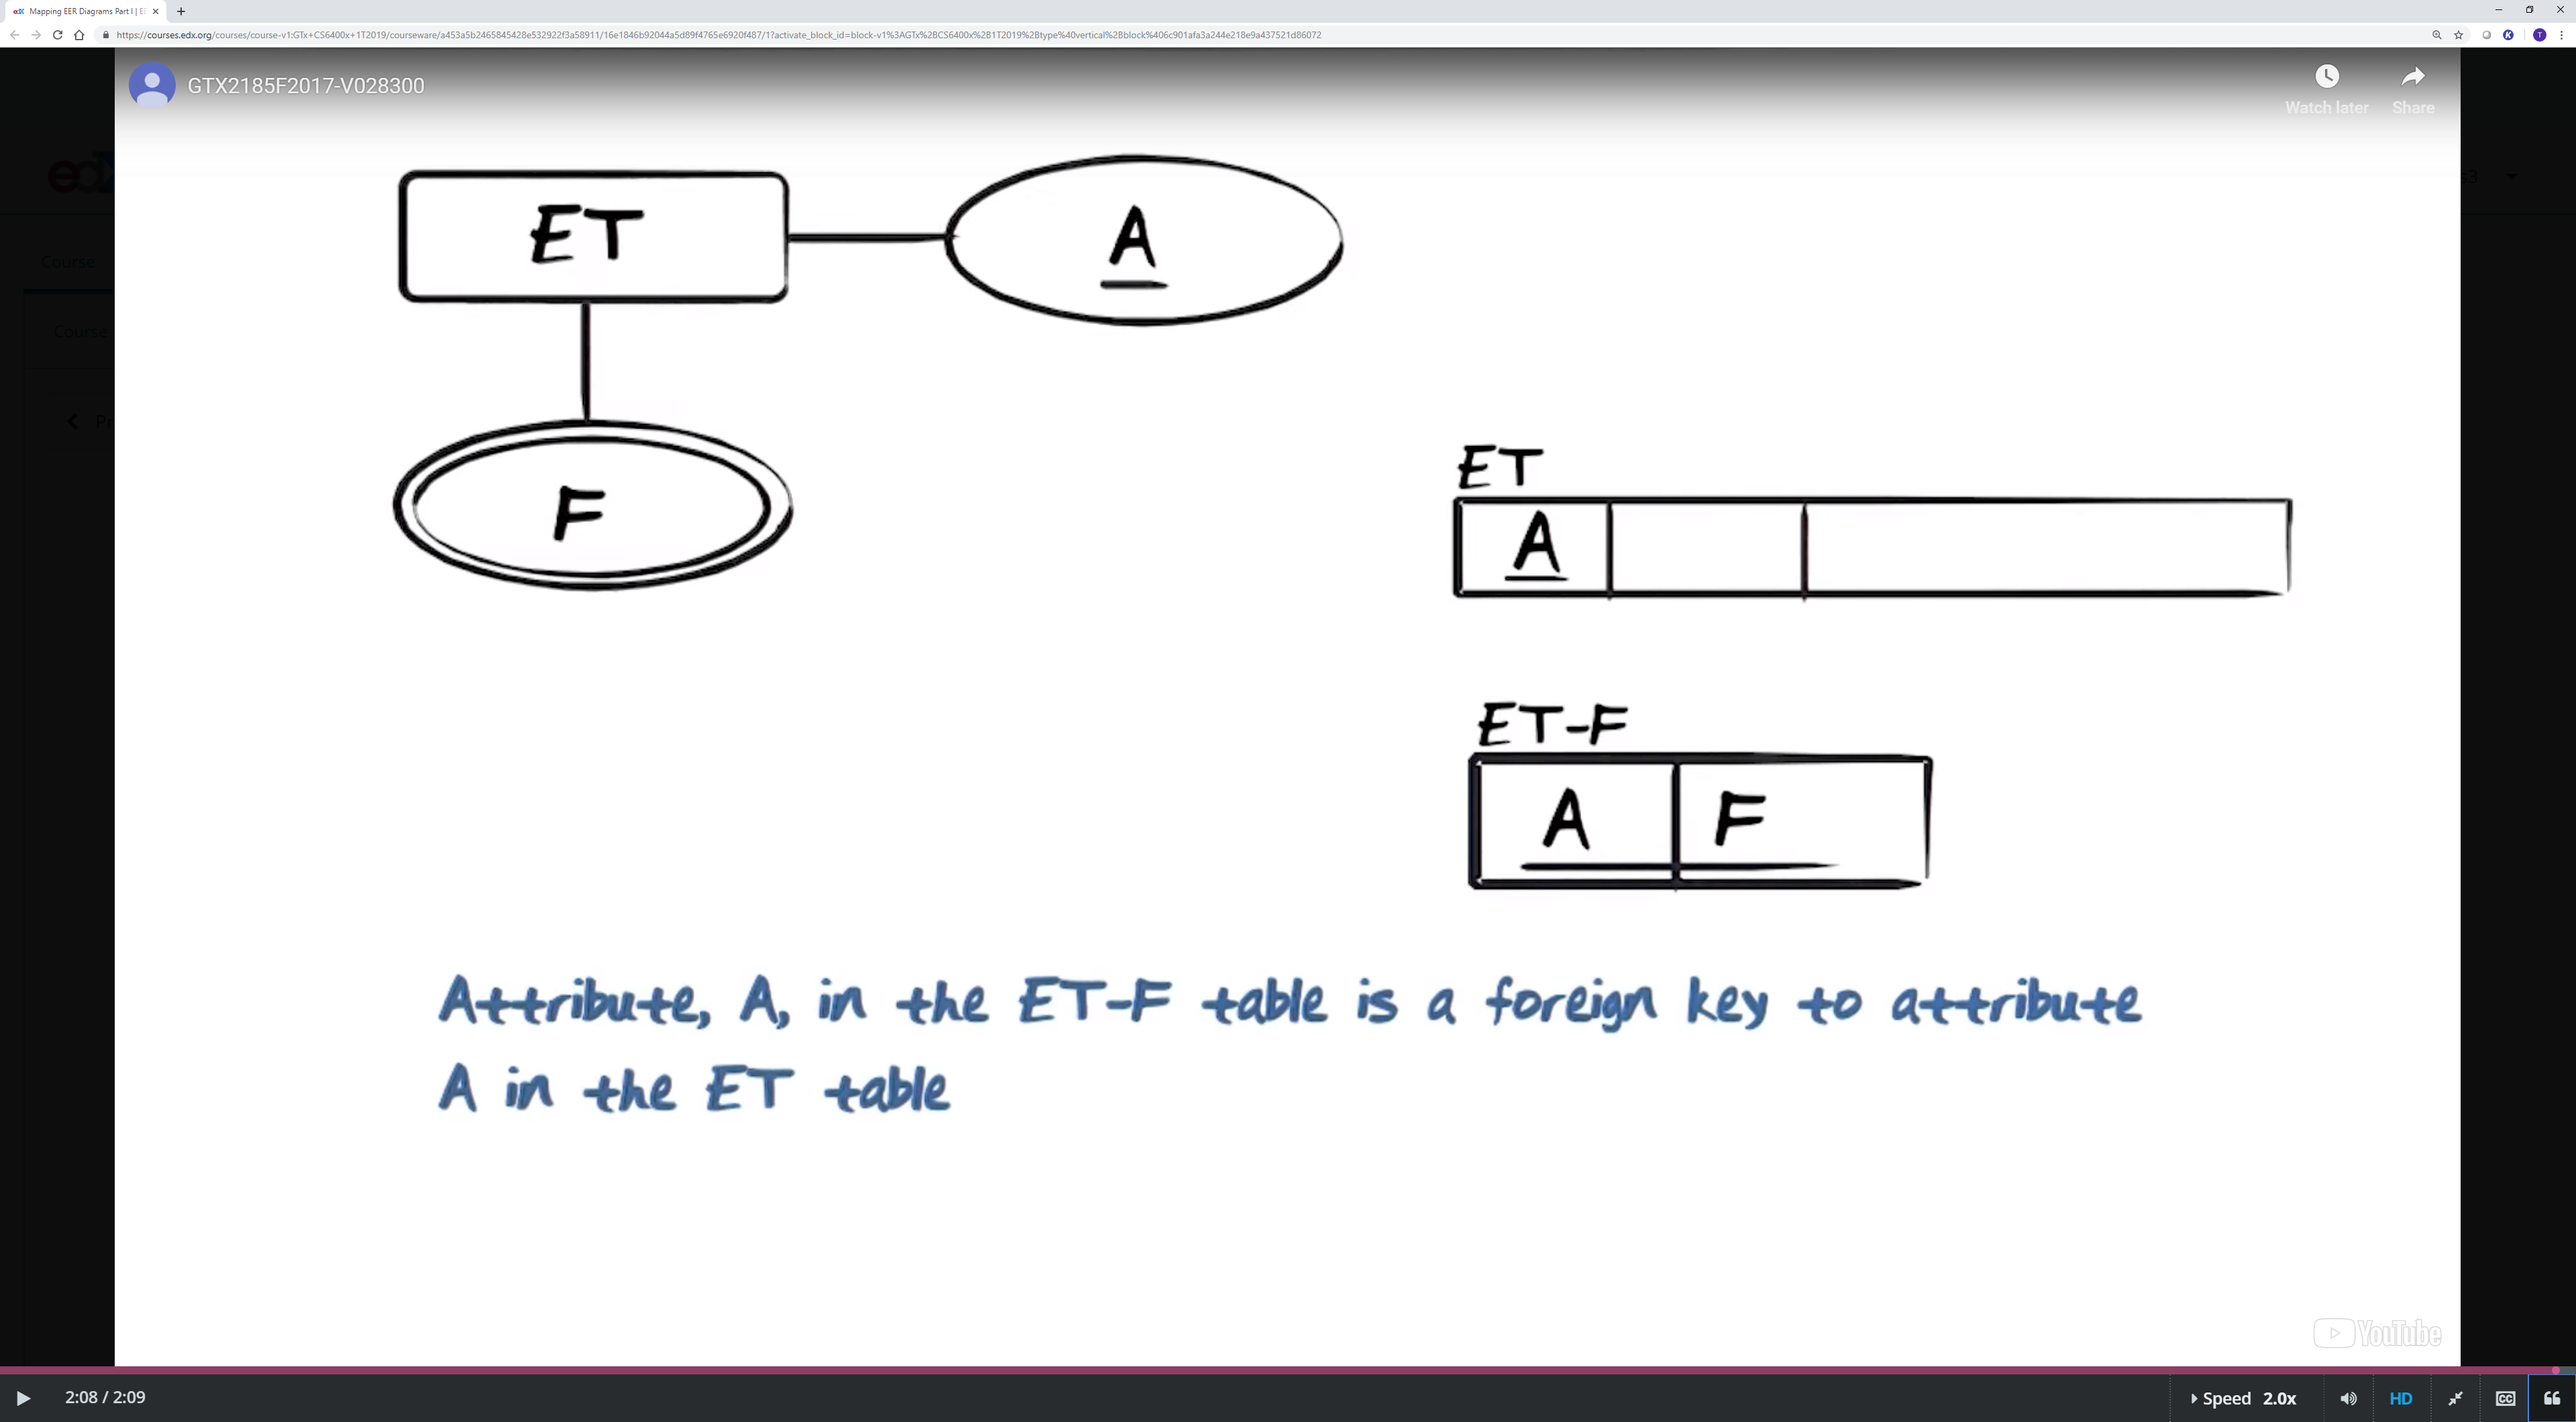 Mapping EER Diagrams Part I | E
https://courses.edx.org/courses/course-v1:GTx+CS6400x+1T2019/courseware/a453a5b2465845428e532922f3a58911/16e1846b92044a5d89f4765e6920f487/1?activate_block_id=block-v1%3AGTx%2BCS6400x%2B1T2019%2Btype%40vertical%2Bblock%406c901afa3a244e218e9a437521d86072
GTX2185F2017-V028300
Watch later
Share
Course
Course
ET
A
F
ET
A
ET-F
A F
Attribute, A, in the ET-F table is a foreign key to attribute
A in the ET table
YouTube
2:08 / 2:09
Speed 2.0x
HD
CC